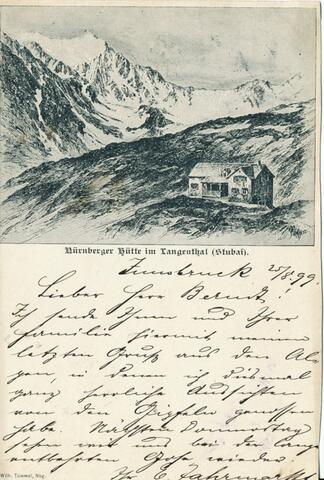 Nürnberger Hütte im Langenthal (Stubai).
Innsbruck 25/8.99.
Lieber Herr Berndt!
Ich sende Ihnen und Ihrer
Familie hiermit meinen
letzten Gruß aus den Al-
pen, in denen ich diesmal
ganz herrliche Aussichten
von den Gipfeln genossen
habe. Nächsten Donnerstag
sehen wir uns bei der lang
entbehrten Gose wieder.
Ihr E. Jahrmarkt
Wilh. Tümmel, Nbg.